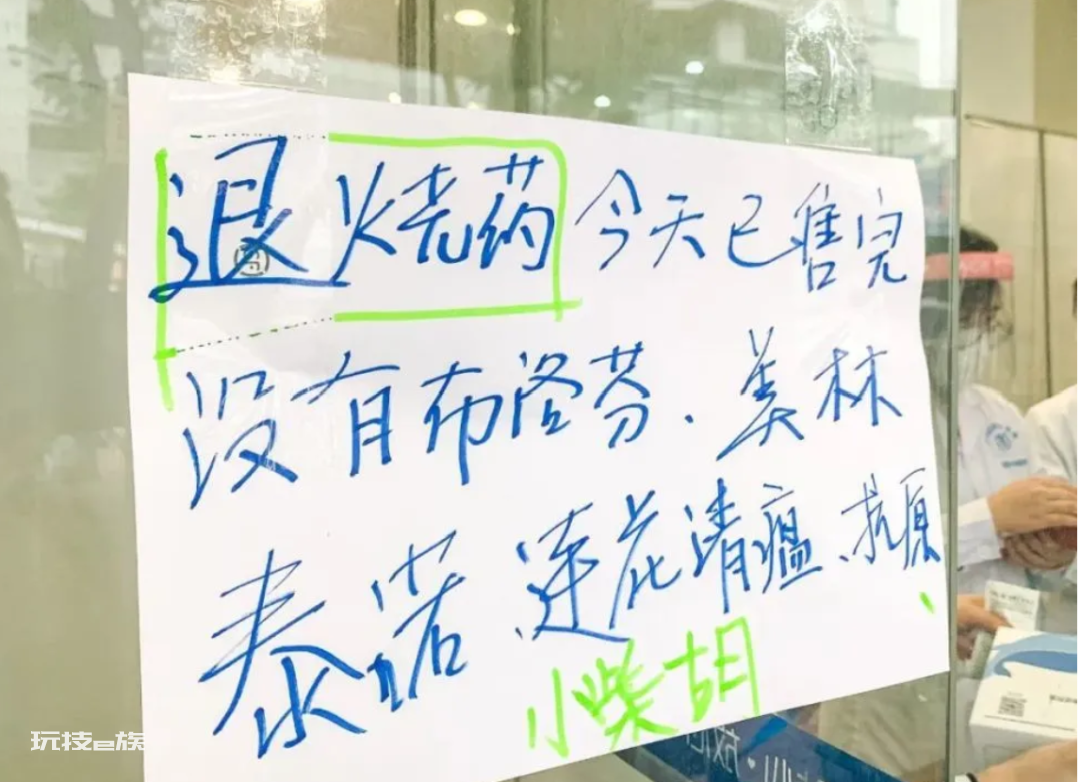 退烧药 今天已售完
没有布洛芬、美林
泰诺、连花清瘟、抗原、
小柴胡
玩技e族